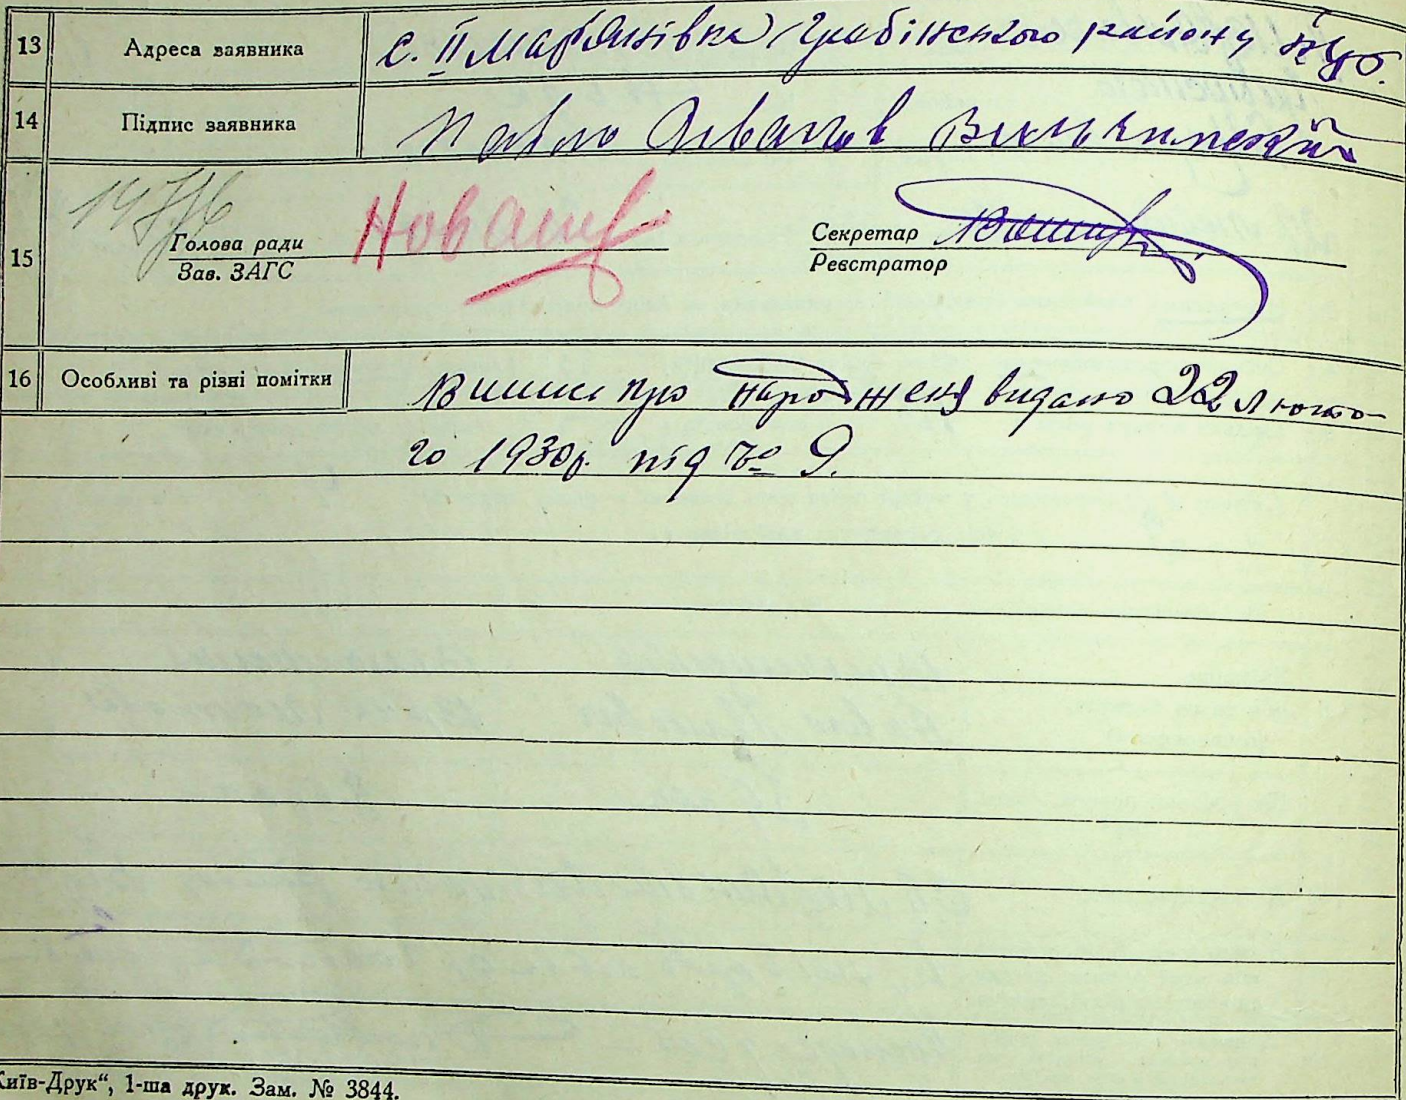 13 Адреса заявника с. II Мар'янівка Грабінського району
14 Підпис заявника Павло Іванов
15 Голова ради
Зав. ЗАГС
Секретар
Реєстратор
16 Особливі та різні помітки Випис про народженя видано 22 Люто-
го 1930р. під № 9.
Київ-Друк“, 1-ша друк. Зам. № 3844.